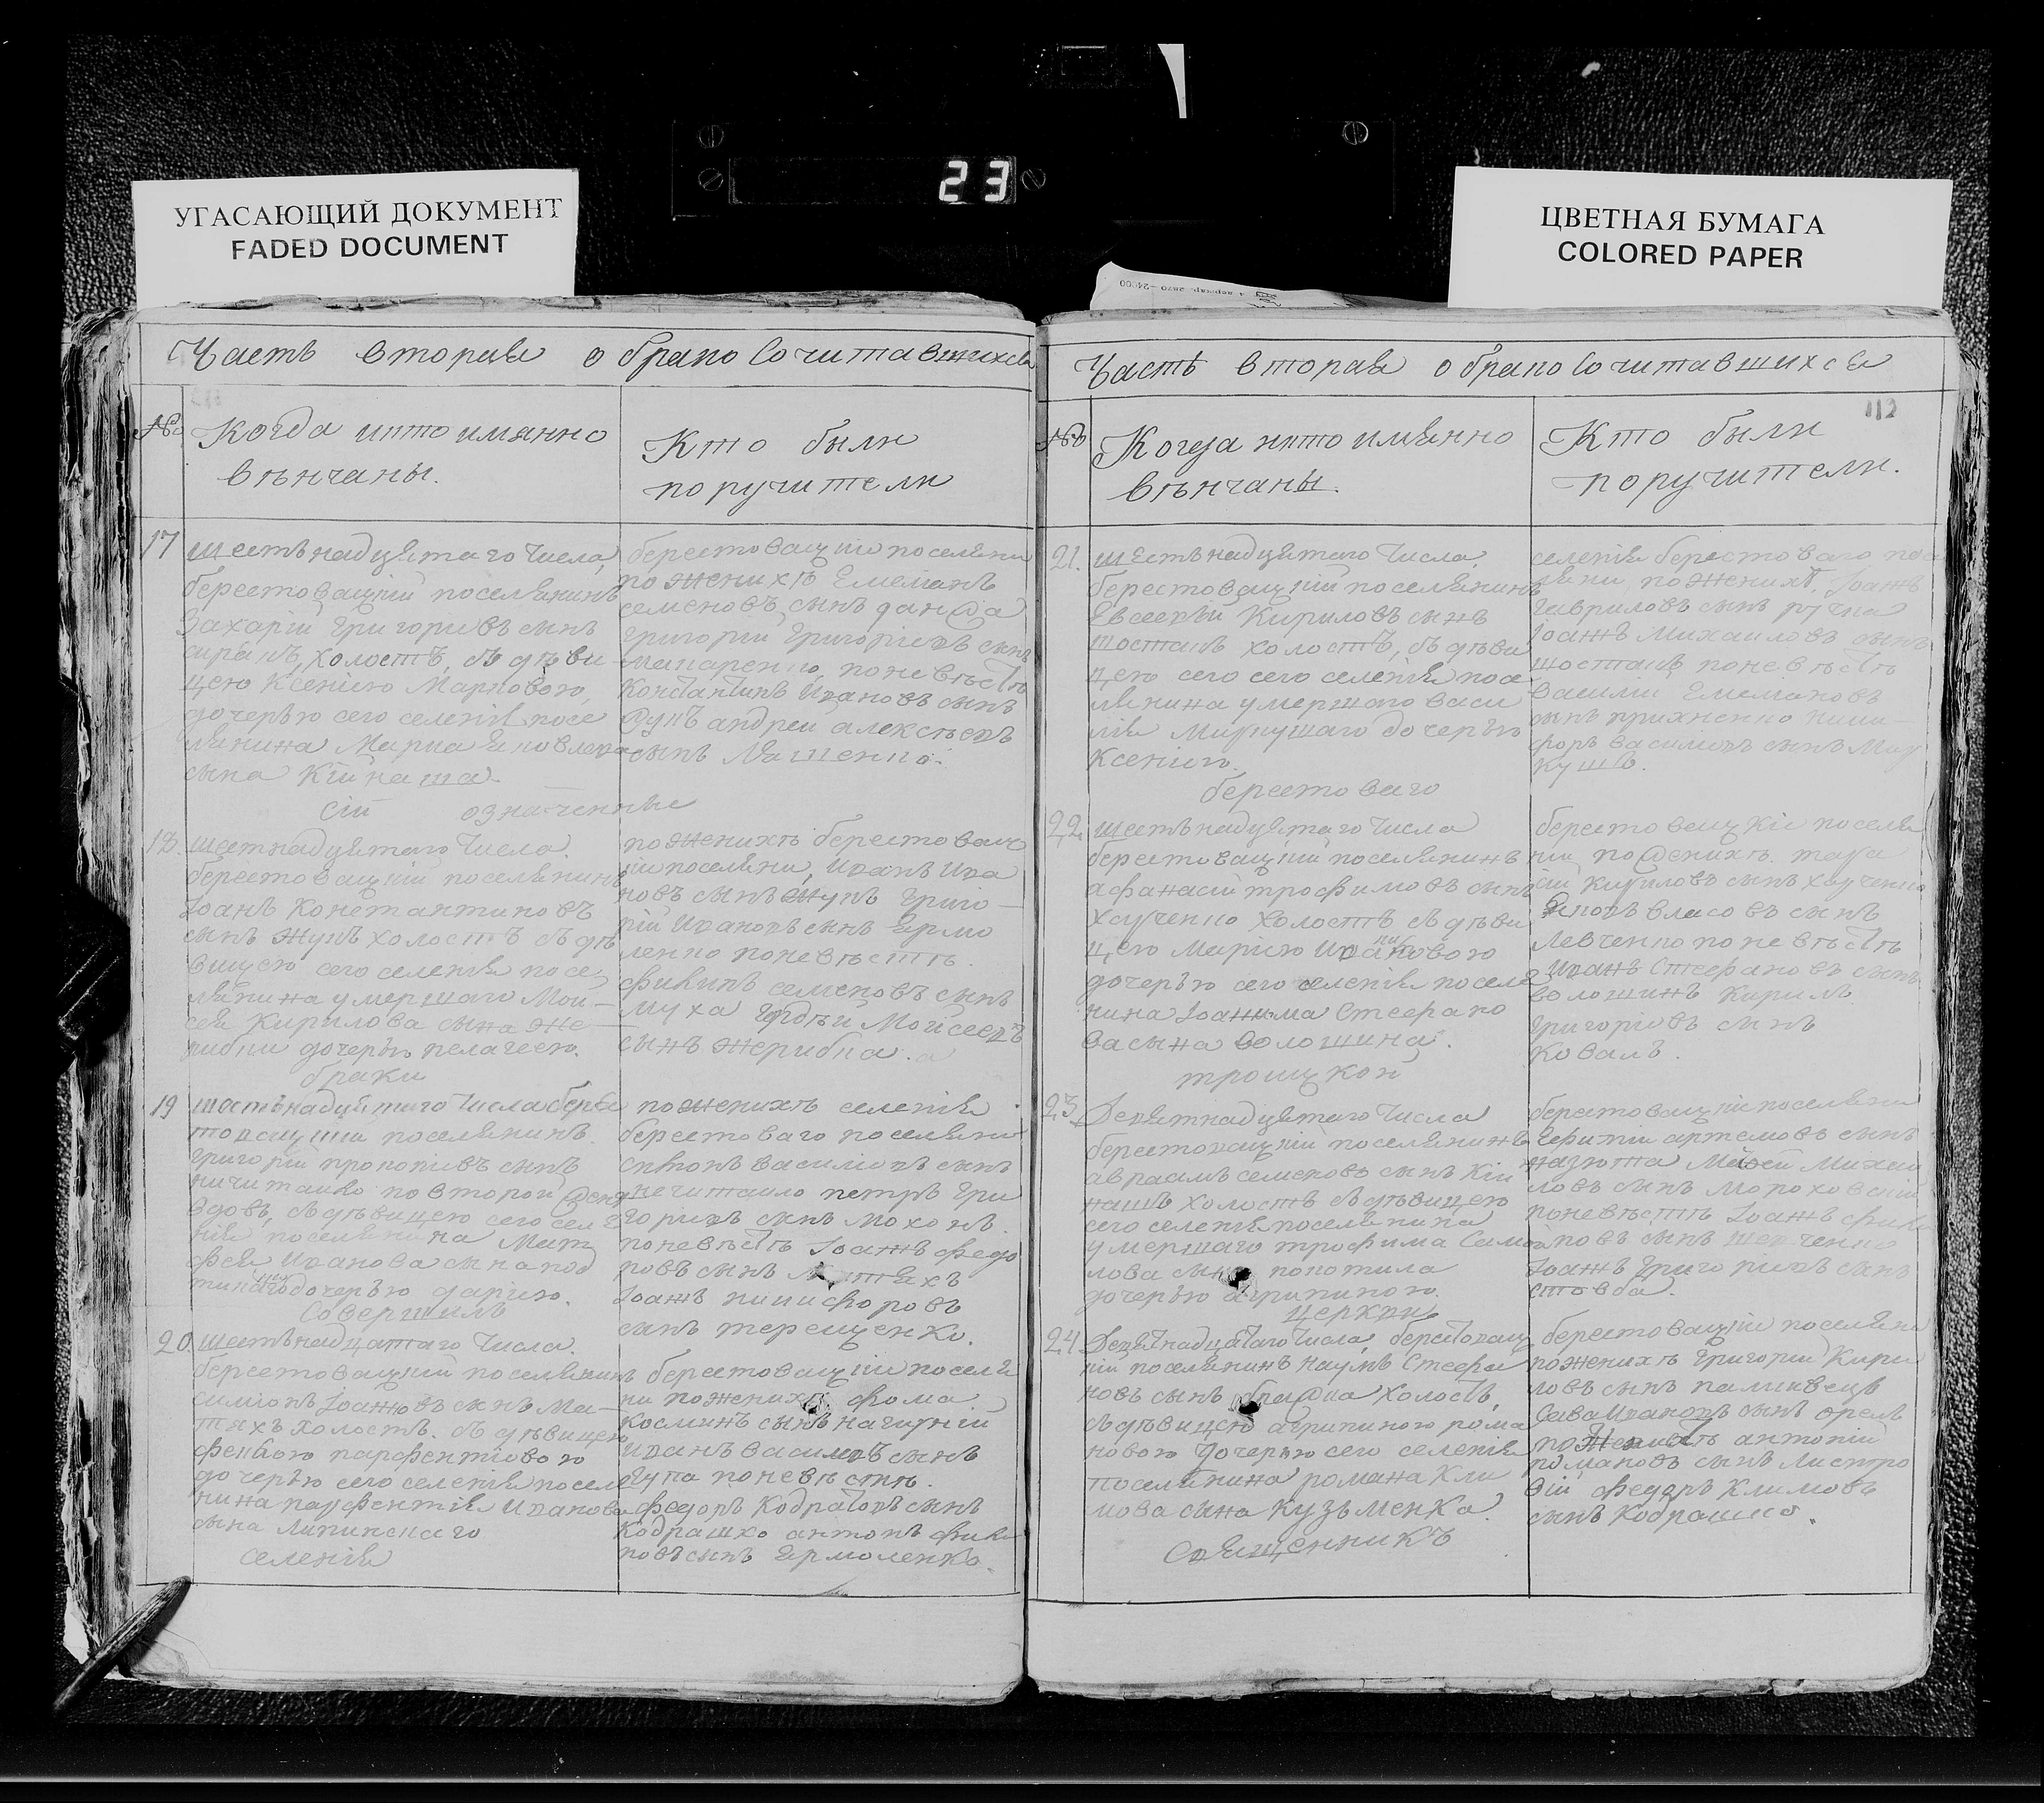 23
УГАСАЮЩИЙ ДОКУМЕНТ
FADED DOCUMENT
ЦВЕТНАЯ БУМАГА
COLORED PAPER
Часть вторая о бракосочитавшихся
№
Когда икто имянно
вѣнчаны.
Кто были
поручители
17
шестьнадцятаго числа,
берестоващкій поселянинъ
Захарій Григоривъ сынъ
холостъ, съ дѣви
цею Ксеніею Марковою,
дочерью сего селенія посе
лянина Марка Яковлева
сына Кійнаша.
берестоващкіе поселяни
по женихѣ Емелианъ
семеновъ сынъ
Григорій Григоріевъ сынъ
макаренко, поневѣстѣ
Константинъ Ивановъ сынъ
андрей алексѣевъ
сынъ Ляшенко.
сіи означенные
18.
шестнадцятаго числа.
берестоващкій поселянинъ
Іоанъ Константиновъ
сынъ Жукъ холостъ съ дѣ
вицею сего селенія посе
лянина умершаго Мои
сея Кирилова сына же
рибки дочерью пелагеею.
поженихѣ берестоващ
кіе поселяни, Иванъ Ива
новъ сынъ Жукъ Григо
рій Ивановъ сынъ Ермо
ленко поневѣстѣ.
семеновъ сынъ
муха Гордѣй Мойсеевъ
сынъ жерибка.
браки
19
шестьнадцятаго числа берес
товащкій поселянинъ
Григорій прокопіевъ сынъ
ничитайло повторой женѣ
вдовъ, съ дѣвицею сего селе
нія поселянина Мат
фея Иванова сына
дочерью дарією.
поженихѣ селенія
берестоваго поселяни
василіовъ сынъ
нечитаило петръ Гри
горивъ сынъ мохонь
поневѣстѣ Іоанъ федо
ровъ сынъ
Іоанъ никифоровъ
сынъ терещенко.
совершилъ
20
шестьнадцатаго числа.
берестоващкій поселянинъ
симіонъ Іоановъ сынъ Ма
тяхъ холостъ. съ дѣвицею
парфентіовою
дочерью сего селенія поселя
нина парфентія Иванова
сына липинскаго
берестоващкіе поселя
ни поженихѣ фома
косминъ сынъ нагирній
Иванъ василіовъ сынъ
поневѣстѣ.
федоръ Кодратовъ сынъ
Кодрашко антонъ
новъ сынъ Ермоленко.
селенія
Часть вторая о бракосочитавшихся
112
№
Когда икто имянно
вѣнчаны.
Кто были
поручители.
21.
шестьнадцятаго числа.
берестоващкій поселянинъ
Евсевій Кириловъ сынъ
шостакъ холостъ, съ дѣви
цею сего сего селенія посе
лянина умершаго васи
лія Миркушаго дочерью
Ксеніею.
селенія берестоваго посе
ляни, поженихѣ, Іоанъ
Гавриловъ сынъ
Іоанъ Михаиловъ сынъ
шостакъ поневѣстѣ
василій Емелиановъ
сынъ прихненко ники
форъ василіовъ сынъ Мир
кушъ.
берестоваго
22.
шестьнадцятаго числа
берестоващкій поселянинъ
афанасій трофимовъ сынъ
харченко холостъ съ дѣви
цею Марією
дочерью сего селенія поселя
нина Іоакима Стефано
ва сына волошина.
берестоващкіе поселя
ни поженихѣ. тара
сій Кириловъ сынъ харченко
Яковъ власовъ сынъ
Левченко поневѣстѣ
Иванъ Стефановъ сынъ
волошинъ Кирилъ
Григоріевъ сынъ
Коваль.
троицкой
23.
Девятнадцятаго числа
берестоващкій поселянинъ
авраамъ семеновъ сынъ Кій
нашъ холостъ съ дѣвицею
сего селенія поселянина
умершаго трофима Самой
лова сына
дочерью агрипиною.
берестоващкіе поселяни
артемовъ сынъ
Мойсей Михаи
ловъ сынъ Мороховскій
поневѣстѣ Іоанъ
новъ сынъ шевченко
Іоанъ Григоривъ сынъ
стовба.
церкви
24.
Девятнадцатаго числа, берестоващ
кій поселянинъ наумъ Стефа
новъ сынъ холостъ,
съ дѣвицею агрипиною рома
новою дочерью сего селенія
поселянина романа Кли
мова сына Кузьменка.
берестоващкіе поселяни
поженихѣ Григорій Кири
ловъ сынъ паликвецъ
Сава Ивановъ сынъ орелъ
антоній
романовъ сынъ
федоръ Климовъ
сынъ Кодрашко.
священникъ